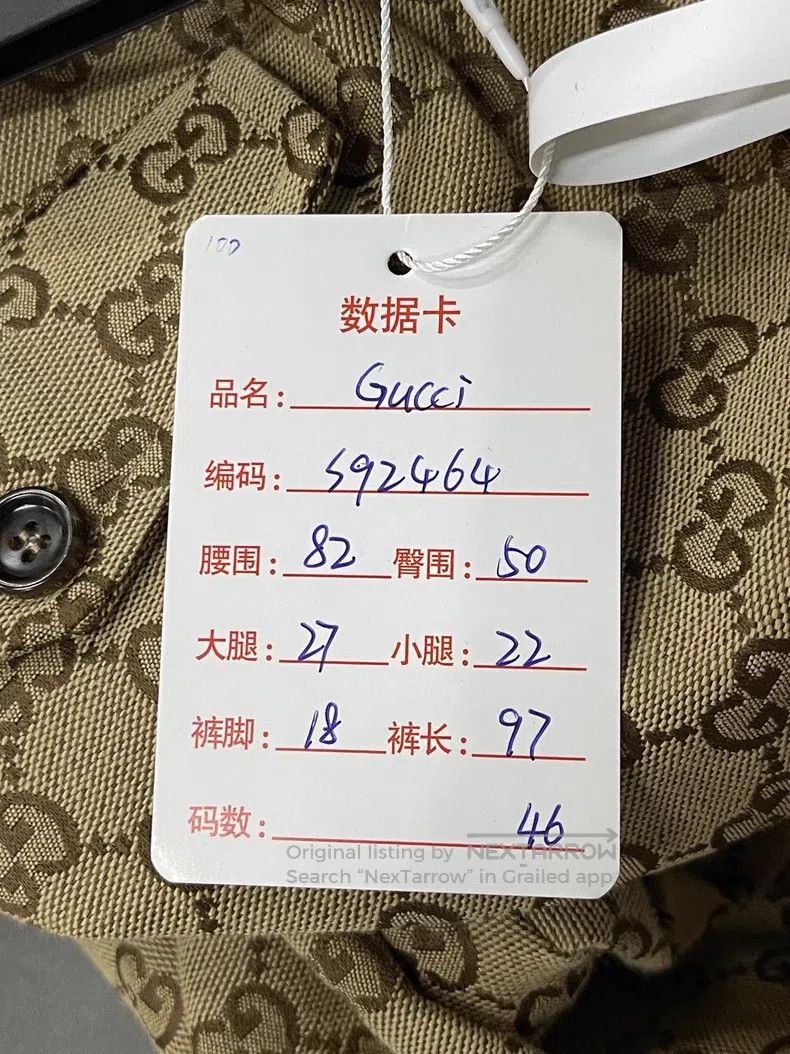 100
数据卡
品名: Gucci
编码: 592464
腰围: 82 臀围: 50
大腿: 27 小腿: 22
裤脚: 18 裤长: 97
码数: 46
Original listing by NEXTARROW
Search “NexTarrow” in Grailed app